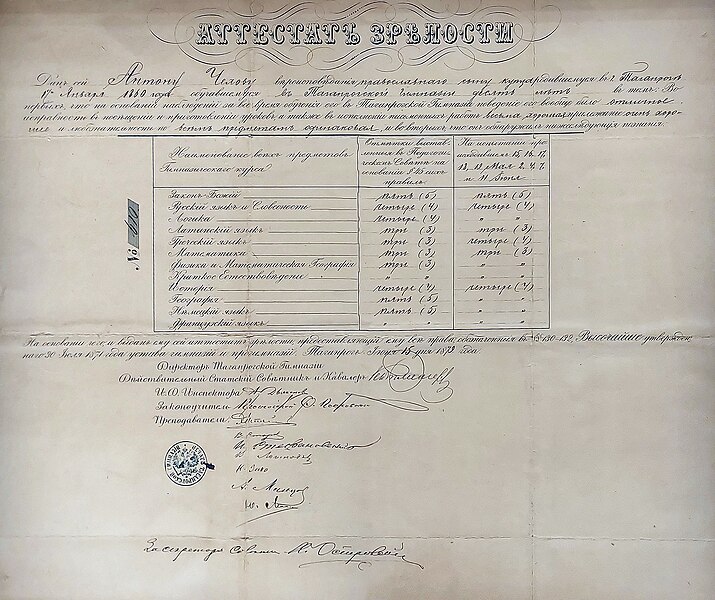 АТТЕСТАТЪ ЗРѢЛОСТИ
Данъ сей Антону Чехову вѣроисповѣданія православнаго, сыну купца, родившемуся въ г. Таганрогѣ
17го Января 1860 года, обучавшемуся въ Таганрогской Гимназіи десять лѣтъ въ томъ: Во
первыхъ, что на основаніи наблюденій за все время обученія его въ Таганрогской Гимназіи поведеніе его вообще было отличное,
исправность въ посѣщеніи и приготовленіи уроковъ, а также въ исполненіи письменныхъ работъ весьма хорошая, прилежаніе очень хоро-
шее и любознательность по всѣмъ предметамъ одинаковая, и во вторыхъ, что онъ обнаружилъ нижеслѣдующія познанія.
Наименованіе всѣхъ предметовъ Гимназическаго курса
Отмѣтки выстав-ленныя въ Педагоги-ческомъ Совѣтѣ на основаніи § 45 сихъ правилъ.
На испытаніи про-исходившемъ 15, 16, 17, Мая 2, 4, 7, и 11 Іюня
№
Законъ Божій пять (5) пять (5)
Русскій языкъ и Словесность четыре (4) четыре (4)
Логика четыре (4) " "
Латинскій языкъ три (3) три (3)
Греческій языкъ три (3) четыре (4)
Математика три (3) три (3)
Физика и Математическая Географія три (3) " "
Краткое Естествовѣдѣніе " " " "
Исторія четыре (4) четыре (4)
Географія пять (5) " "
Нѣмецкій языкъ пять (5) " "
Французскій языкъ " " " "
На основаніи чего и выданъ ему сей аттестатъ зрѣлости, предоставляющій ему всѣ права, обозначенныя въ §§ 130-132 Высочайше утвержден-
наго 30 Іюля 1871 года устава гимназій и прогимназій. Таганрогъ Іюня 15 дня 1879 года.
Директоръ Таганрогской Гимназіи
Дѣйствительный Статскій Совѣтникъ и Кавалеръ
И.О. Инспектора А. Дьяконовъ
Законоучитель Протоіерей Ѳ. Покровскій
Преподаватели:
За секретаря Совѣта